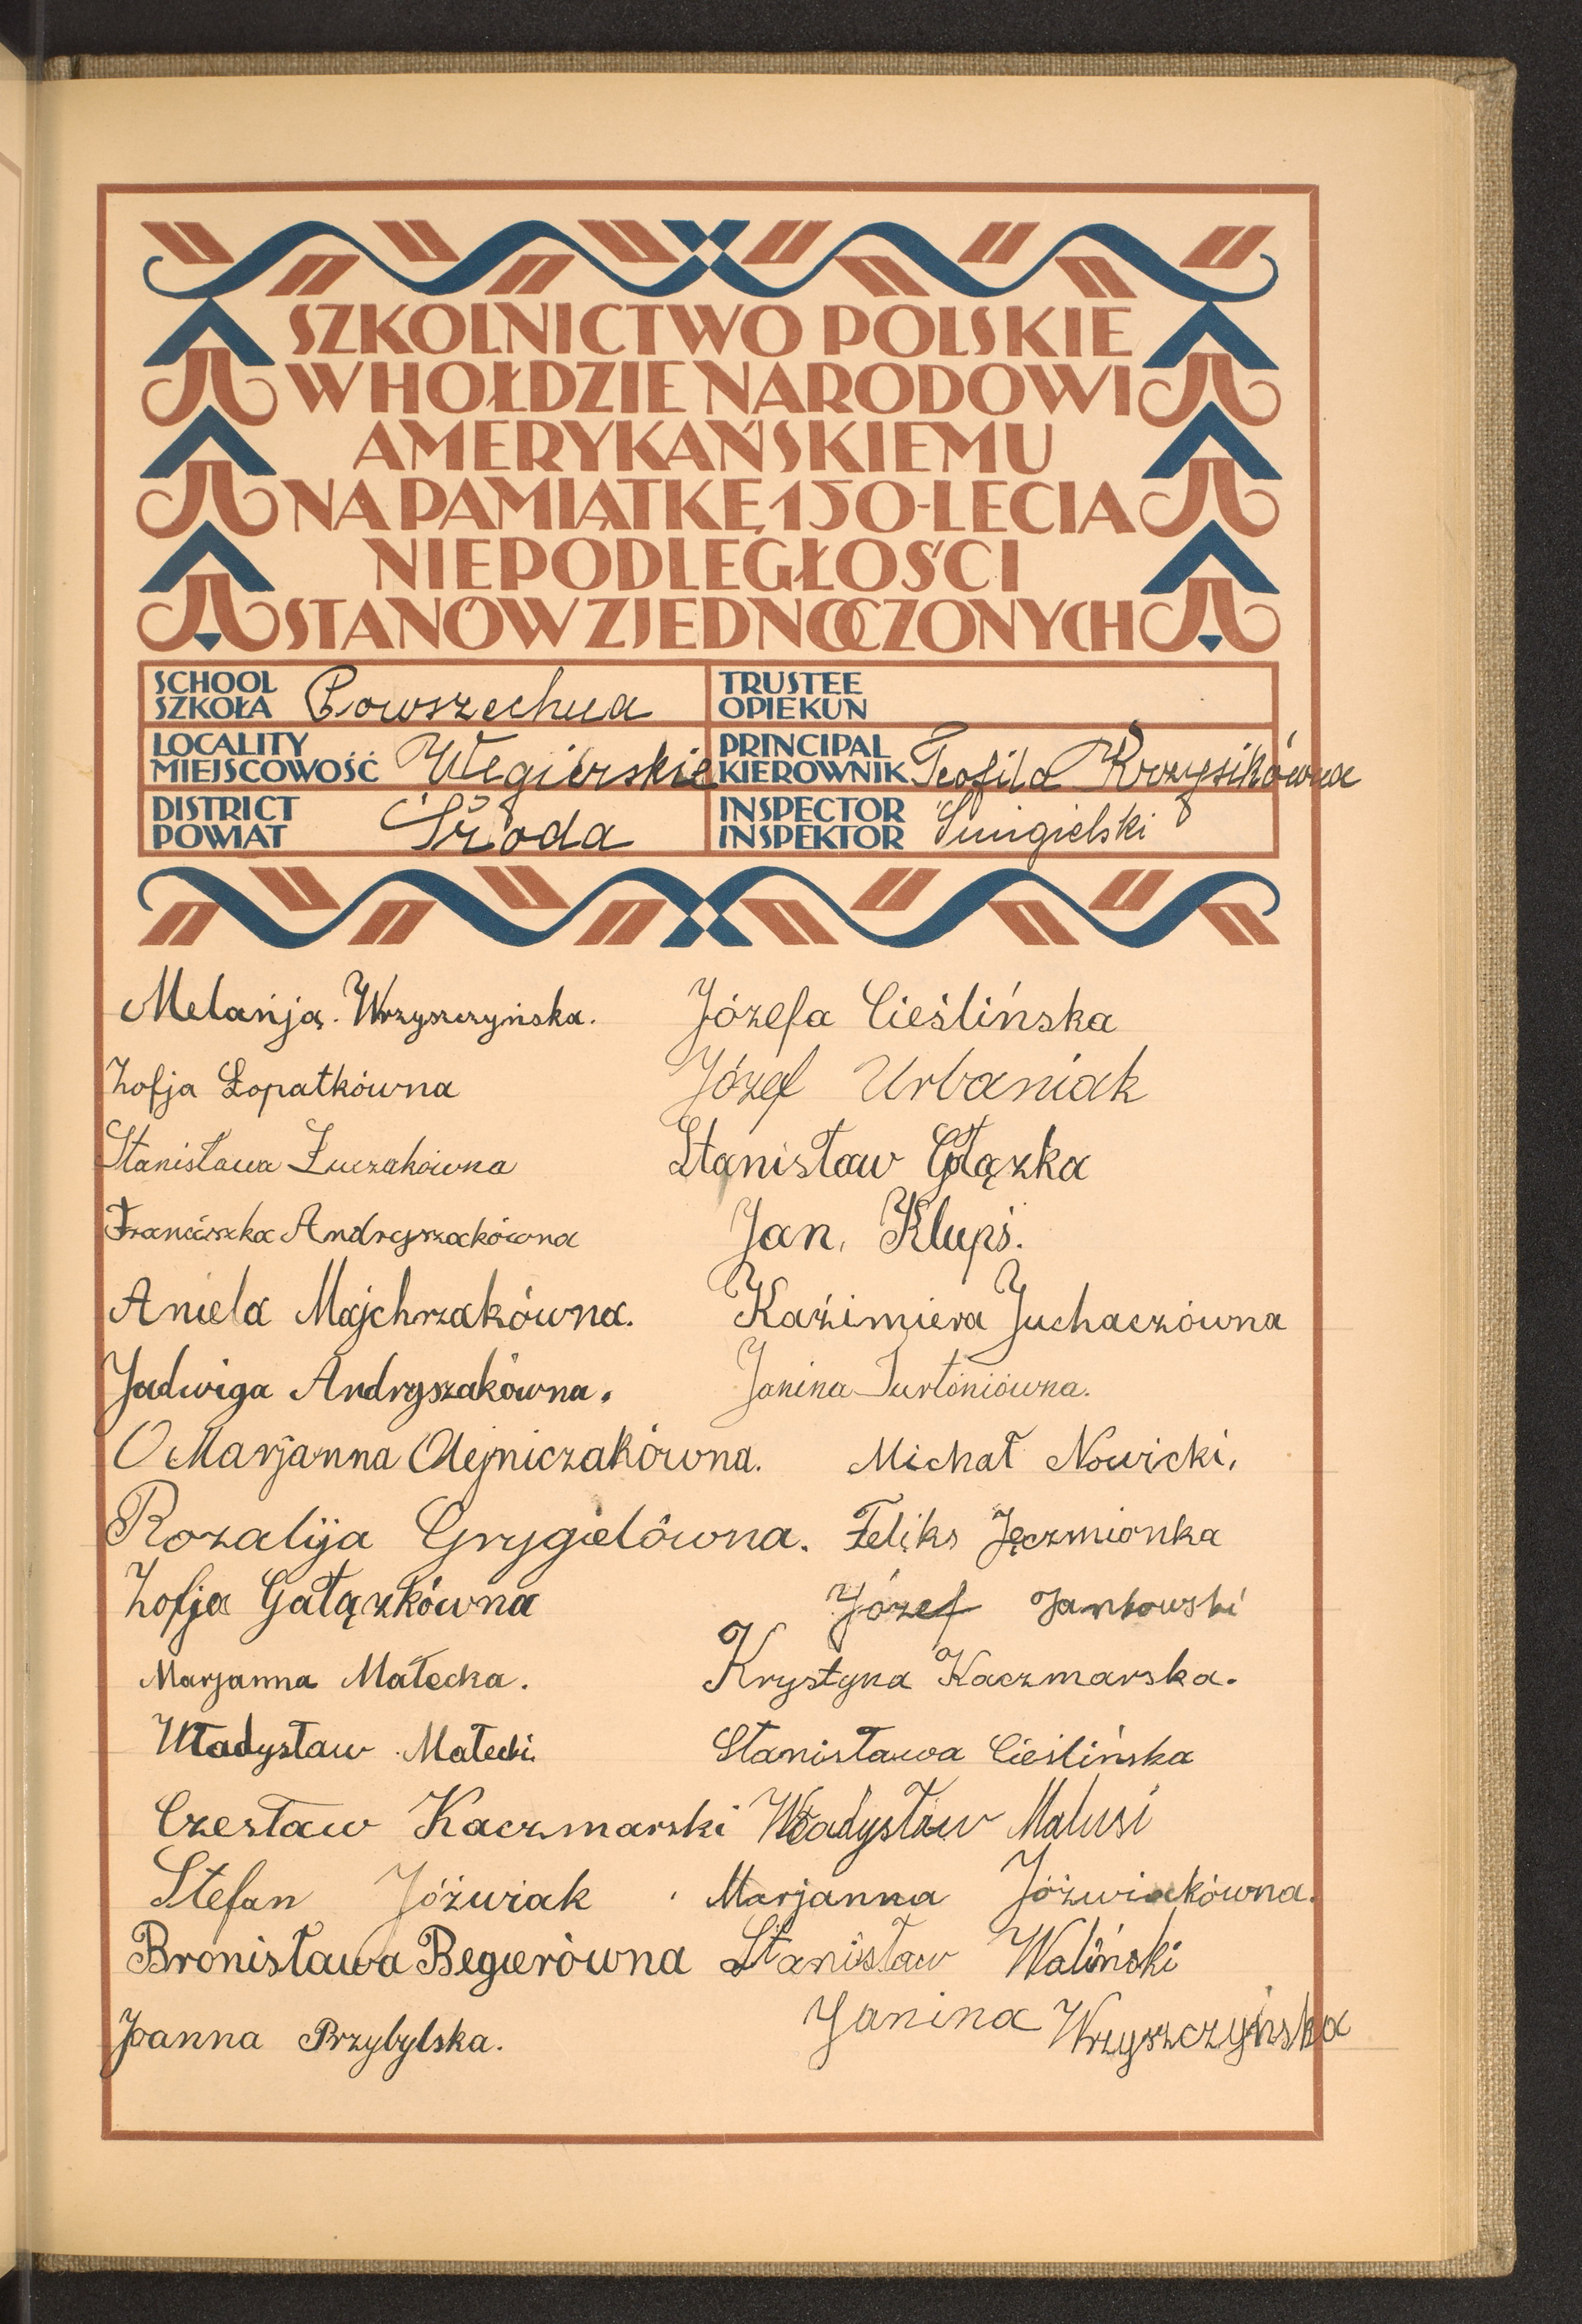 SZKOLNICTWO POLSKIE
W HOŁDZIE NARODOWI
AMERYKAŃSKIEMU
NA PAMIĄTKĘ 150-LECIA
NIEPODLEGŁOŚCI
STANÓW ZJEDNOCZONYCH
SCHOOL
SZKOŁA Powszechna
TRUSTEE
OPIEKUN
LOCALITY
MIEJSCOWOŚĆ Węgierskie
PRINCIPAL
KIEROWNIK Teofila Krzysikówna
DISTRICT
POWIAT Środa
INSPECTOR
INSPEKTOR Śmigielski
Melanja. Wrzyszczyńska. Józefa Cieślińska
Zofja Łopatkówna Józef Urbaniak
Stanisława Łuczakówna Stanisław Głązka
Franciszka Andryszakówna Jan, Klupś.
Aniela Majchrzakówna. Kaźimiera Juchaczówna
Jadwiga Andryszakówna. Janina Turłoniówna.
Marjanna Olejniczakówna. Michał Nowicki,
Rozalija Grygielówna. Feliks Jęczmionka
Zofja Gałązkówna Józef Jankowski
Marjanna Małecka. Krystyna Kaczmarska.
Władysław Małecki Stanisława Cieślińska
Czesław Kaczmarski Władysław Malusi
Stefan Jóźwiak Marjanna Jóźwiakówna.
Bronisława Begierówna Stanisław Waliński
Joanna Przybylska. Janina Wrzyszczyńska